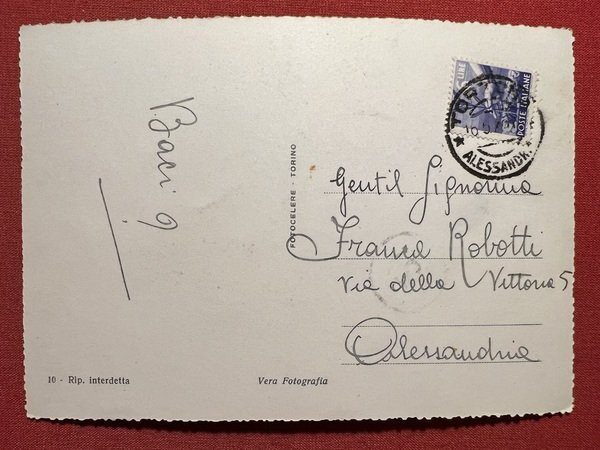 Baci
FOTOCELERE - TORINO
LIRE
POSTE ITALIANE
ALESSANDR.
Gentil Signorina
Franca Robotti
Via della Vittoria 5
Alessandria
10 - Rip. interdetta
Vera Fotografia